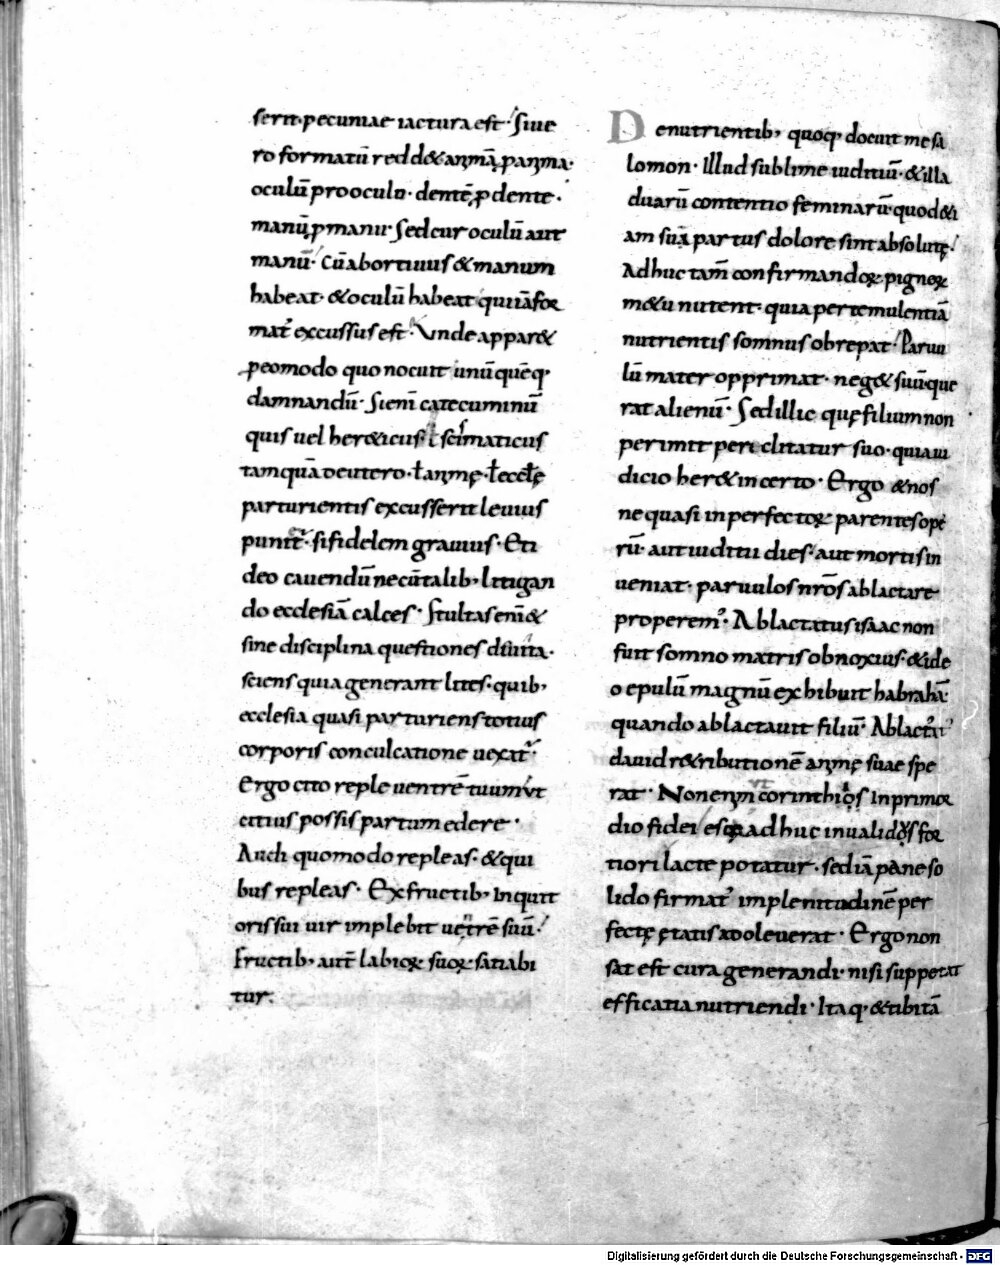 serit· pecuniae iactura est· Siue
ro formatū redd& anımā p anıma·
oculū pro oculo· dentē p dente·
manū p manu· Sed cur oculū aut
manū· Cū abortiuus & manum
habeat· & oculū habeat qui iā for
mat᷒ excussus est· Vnde appar&
peo modo quo nocuit unū quēq·
damnandū· Si eni catecuminū
quis uel her&icus· ł scismaticus
tamquā deutero· t anıme· t eccłę
parturientis excusserit leuius
punit᷒· si fidelem grauius· Et i
deo cauendū ne cū talib; litigan
do ecclesiā calces· Stultas eni &
sine disciplina questiones deuita·
sciens quia generant lites· quib;
ecclesia quasi parturiens totius
corporis conculcatione uexat᷒·
Ergo cito reple uentrē tuum ut
citius possis partum edere·
Audi quomodo repleas· & qui
bus repleas· Ex fructib; inquit
oris sui uir implebit uentrē suū·
Fructib; aut labioꝝ suoꝝ satiabi
tur·
De nutrientib; quoq; docuit me sa
lomon· Illud sublime iuditiū· & illa
duarū contentio feminarū· quod &i
am suā partus dolore sint absolutę·
Adhuc tam confirmandoꝝ pignoꝝ
m&u nutent· quia per temulentiā
nutrientis somnus obrepat· Paruu
lū mater opprimat· neg& suū que
rat alienū· Sed illic quę filium non
perimit periclitatur suo· quia iu
dicio her& incerto· Ergo & nos
ne quasi inperfectoꝝ parentes ope
rū· aut iuditii dies· aut mortis in
ueniat· paruulos nr̄os ablactare
properem᷒· Ablactatus isaac non
fuit somno matris obnoxius· & ide
o epulū magnū exhibuit habrahā·
quando ablactauit filiū· Ablactat᷒
dauid r&ributionē anımę suae spe
rat· Non enim corinthios in primor
dio fidei esca adhuc inualidos for
tiori lacte potatur· sed iā pane so
lido firmat᷒ implenitudinē per
fectę ętatis adoleuerat· Ergo non
sat est cura generandi· nisi suppetat
efficatia nutriendi· Itaq; & tibi tā
Digitalisierung gefördert durch die Deutsche Forschungsgemeinschaft - DFG